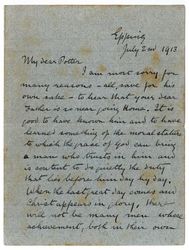 Epping
July 2nd 1913
My dear Potter
I am most sorry for
many reasons - all, save for his
own sake - to hear that your dear
Father is so near going Home. It is
good to have known him and to have
learned something of the moral stature
to which the grace of God can bring
a man who trusts in him and
is content to do quietly the duty
that lies before him day by day.
When the last great day comes and
Christ appears in glory, there
will not be many men whose
achievement, both in their own